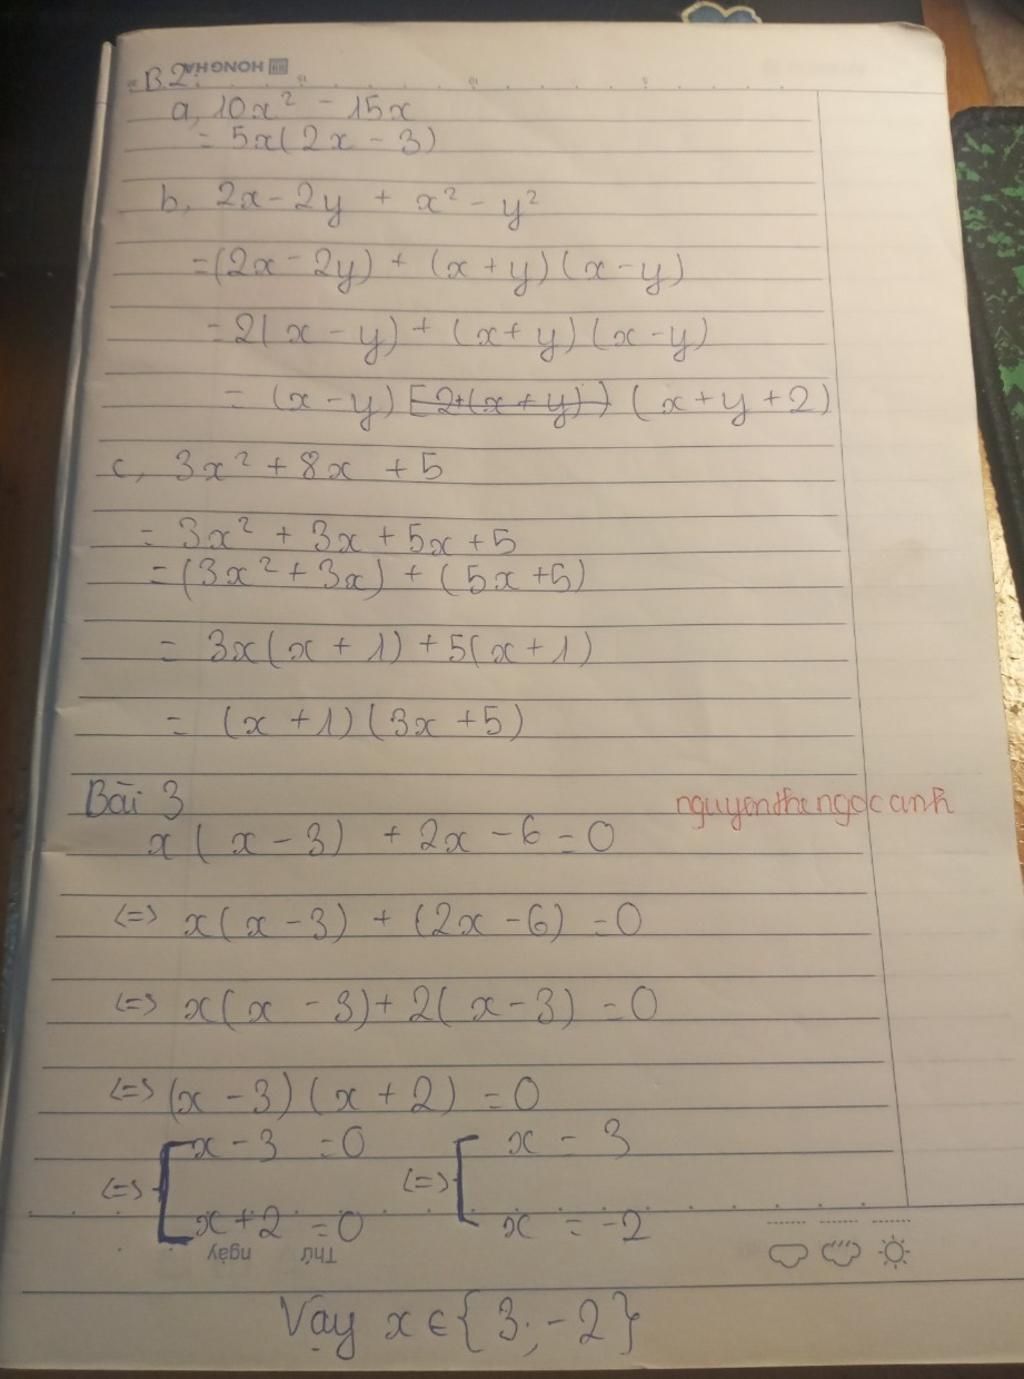 HONG HA
B.2
a, 10x² - 15x
= 5x(2x - 3)
b, 2x - 2y + x² - y²
= (2x - 2y) + (x + y)(x - y)
= 2(x - y) + (x + y)(x - y)
= (x - y) [2+(x + y)] (x + y + 2)
c, 3x² + 8x + 5
= 3x² + 3x + 5x + 5
= (3x² + 3x) + (5x + 5)
= 3x(x + 1) + 5(x + 1)
= (x + 1)(3x + 5)
Bài 3
nguyenthengocanh
x(x - 3) + 2x - 6 = 0
<=> x(x - 3) + (2x - 6) = 0
<=> x(x - 3) + 2(x - 3) = 0
<=> (x - 3)(x + 2) = 0
<=> [ x - 3 = 0 <=> [ x = 3
x + 2 = 0 x = -2
Thứ ngày
Vậy x ∈ {3; -2}